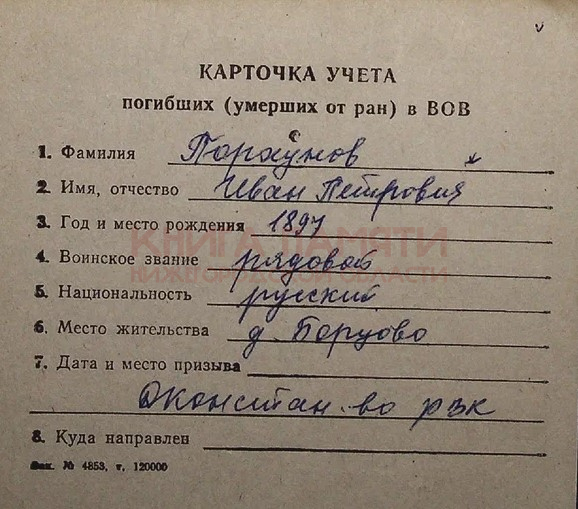 КАРТОЧКА УЧЕТА
погибших (умерших от ран) в ВОВ
1. Фамилия Порхунов
2. Имя, отчество Иван Петрович
3. Год и место рождения 1897
4. Воинское звание рядовой
5. Национальность русский
6. Место жительства д. Борцово
7. Дата и место призыва
Дконстан-во рвк
8. Куда направлен
Зак. № 4853, т. 120000
КНИГА ПАМЯТИ
НИЖЕГОРОДСКОЙ ОБЛАСТИ